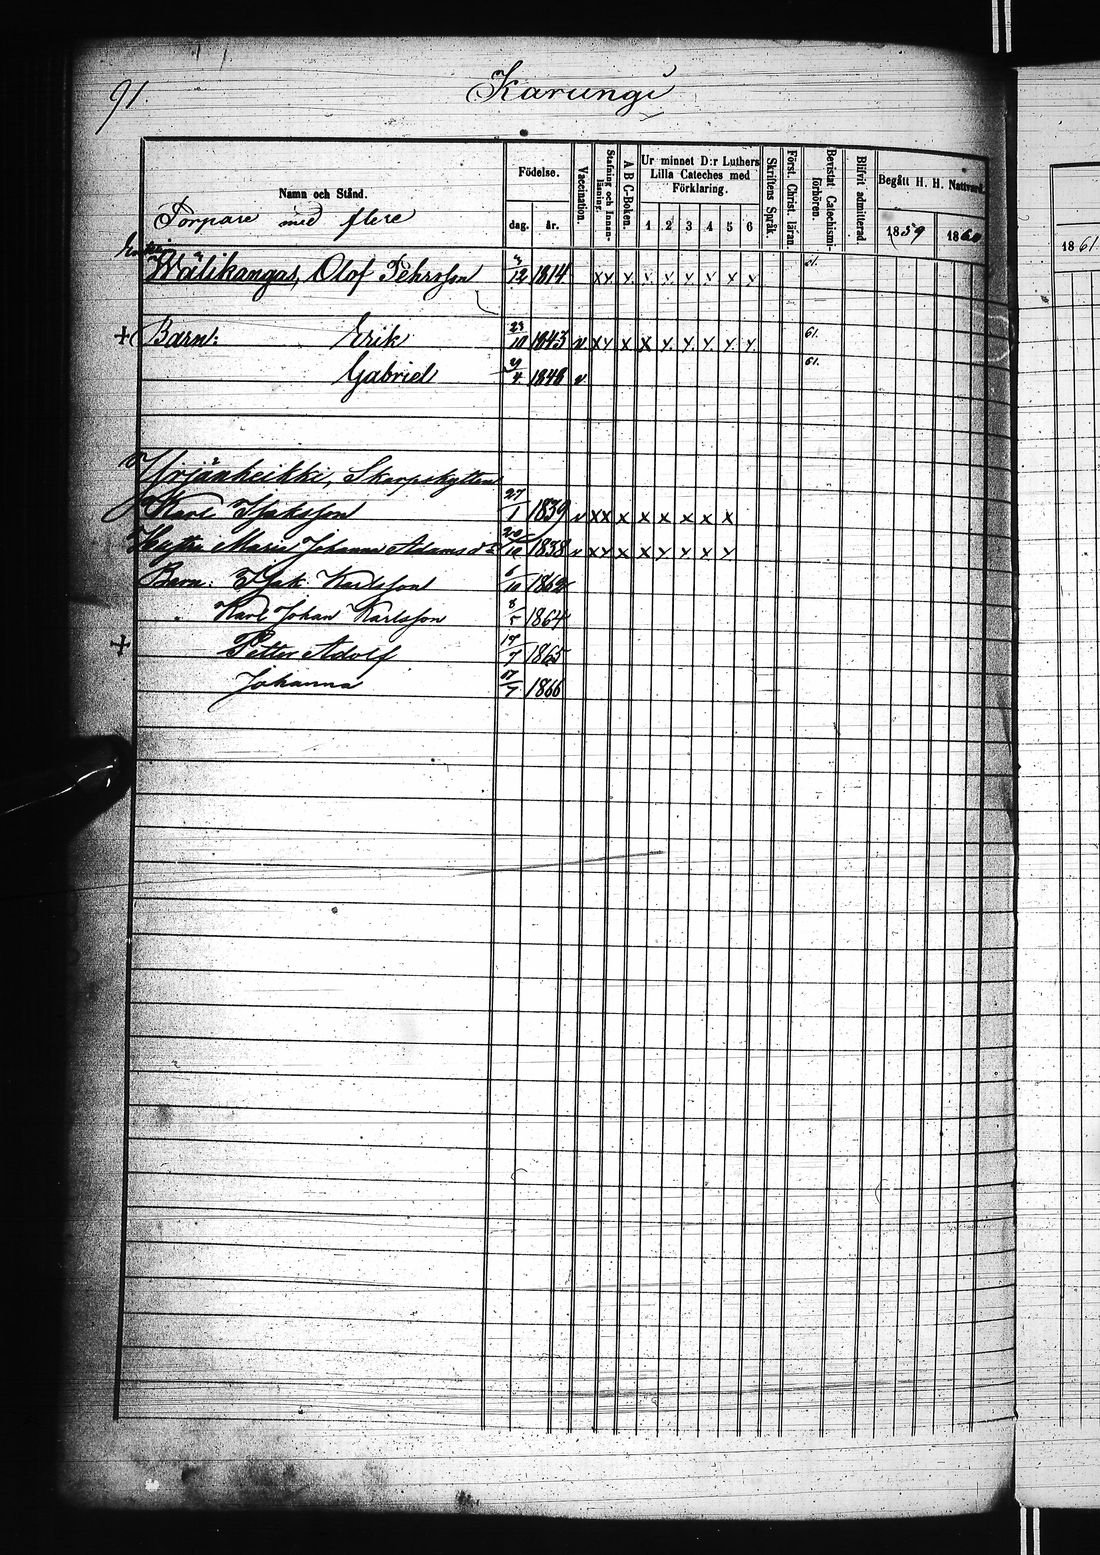 91.
Karungi
Namn och Stånd.
Torpare med flere
Födelse.
dag. år.
Vaccination.
Stafning och Innan-läsning.
A B C-Boken.
Ur minnet D:r Luthers
Lilla Cateches med
Förklaring.
1 2 3 4 5 6
Skriftens Språk.
Först. Christ. läran.
Bevistat Catechismi-förhören.
Blifvit admitterad.
Begått H. H. Nattvard.
1859 1860
1861
Wälikangas, Olof Pehrsson 3/12 1814 x y y y y y y y y
+ Barn: Erik 23/10 1843 v x y x x y y y y y 61.
Gabriel 29/4 1848 v 61.
Yrjänheikki, Skarpskytten
Karl Isaksson 27/1 1839 v x x x x x x x x
Hustru Maria Johanna Adamsd:r 20/10 1838 v x y x x y y y y
Barn: Isak Karlsson 6/10 1862
Karl Johan Karlsson 8/5 1864
+ Petter Adolf 19/7 1865
Johanna 17/7 1866